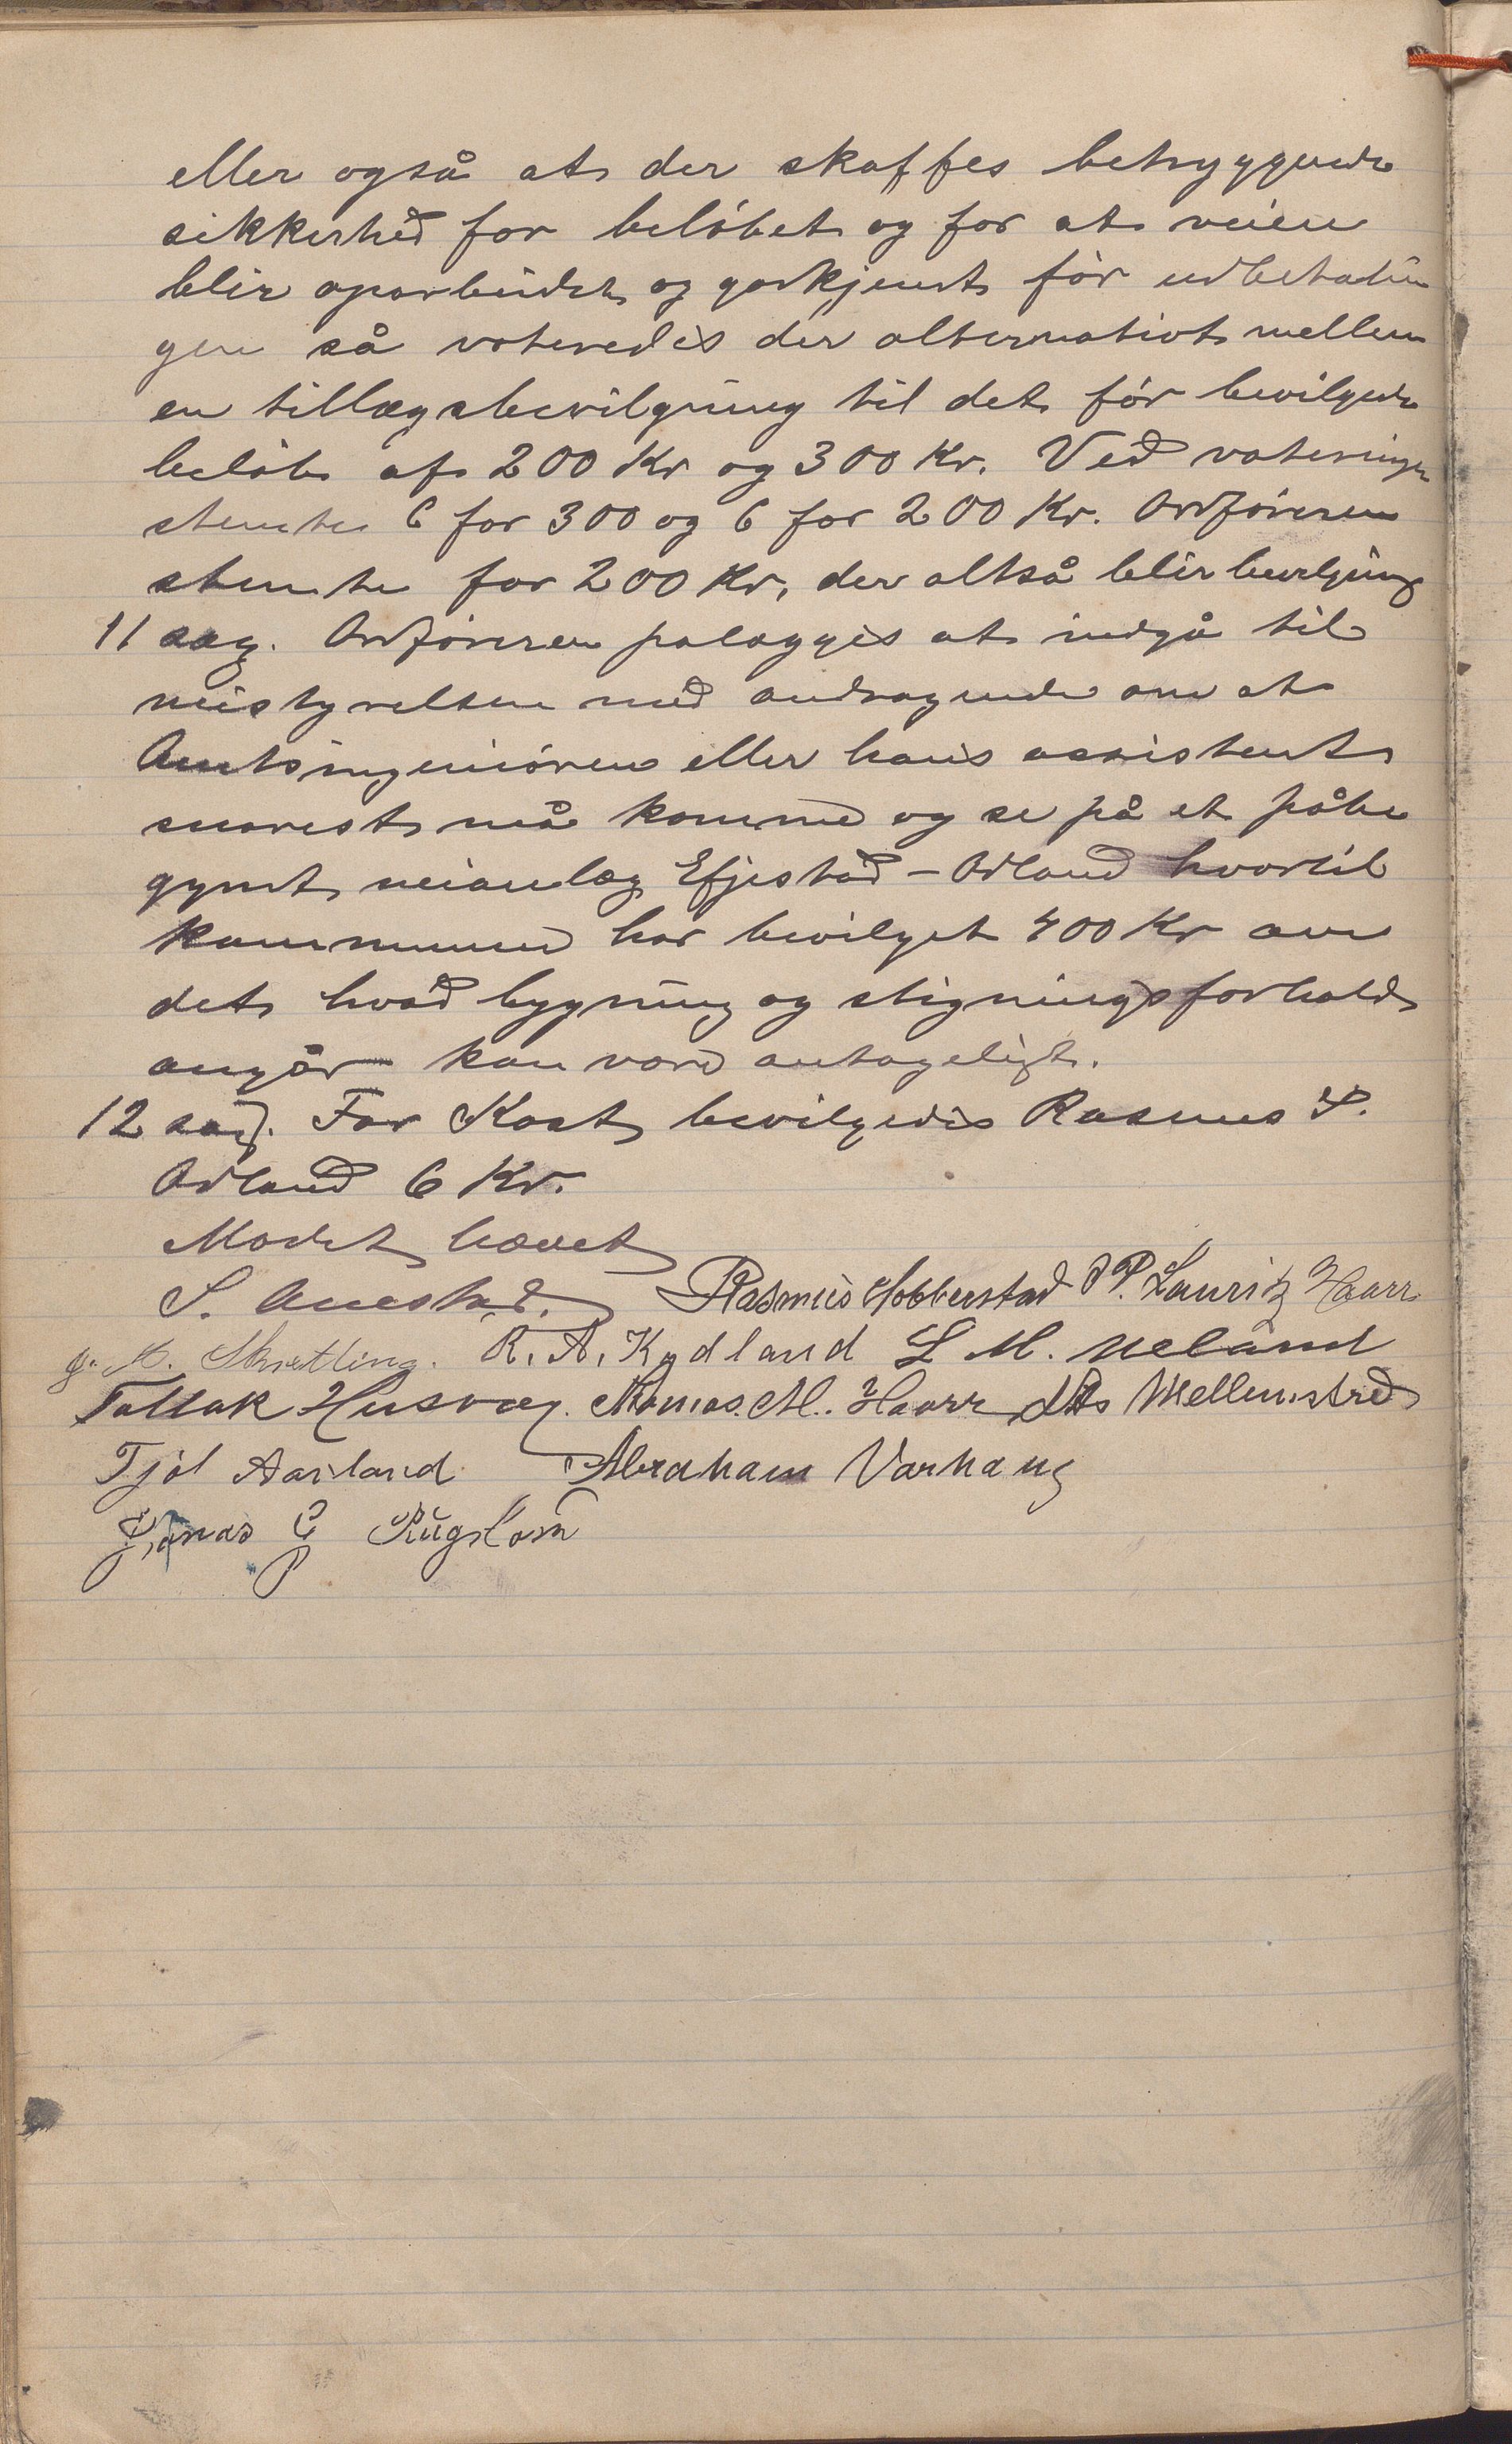 eller også at der skaffes betryggende
sikkerhed for beløbet og for at veien
blir oparbeidet og godkjent før udbetalin
gen så voteredes der alternativt mellem
en tillægsbevilgning til det før bevilgede
beløb af 200 Kr og 300 Kr. Ved voteringen
stemte 6 for 300 og 6 for 200 Kr. Ordføreren
stemte for 200 Kr, der altså blir bevilgning
11 sag. Ordføreren palægges at indgå til
veistyrelsen med andragende om at
Amtsingeniøren eller hans assistent
snarest må komme og se på et påbe
gynt veianlæg Efjestad - Odland hvortil
kommunen har bevilget 400 Kr om
det hvad bygning og stigningsforhold
angår kan være antageligt.
12 sag. For Kost bevilgedes Rasmus S.
Odland 6 Kr.
Mødet hævet
S. Anestad. Rasmus Hobberstad P. Lauritz Haarr
M. Skretting. R. A. Kydland L M. Ueland
Tollak Husvæg. Thomas. M. Haarr Mellemstrød
Tjöl Aarland Abraham Varhaug
Jonas G Rugland